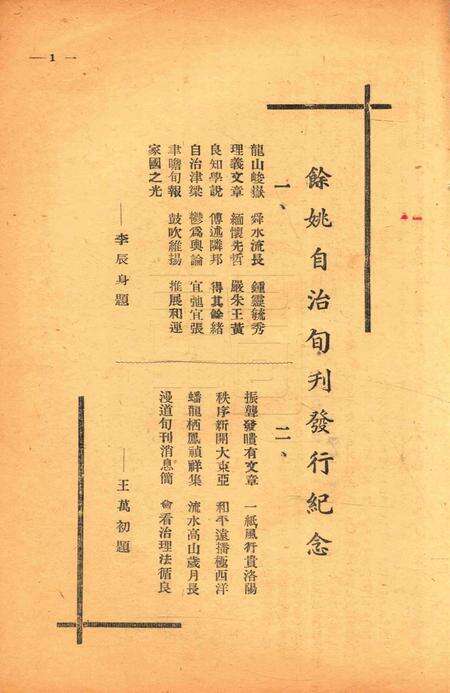 — 1 —
餘姚自治旬刊發行紀念
一、
龍山峻嶽　舜水流長　鍾靈毓秀
理義文章　緬懷先哲　嚴朱王黃
良知學說　傳述隣邦　得其餘緒
自治津梁　鬱為輿論　宜弛宜張
聿瞻旬報　鼓吹維揚　推展和運
家國之光
——李辰身題
二、
振聾發聵有文章　一紙風行貴洛陽
秩序新開大東亞　和平遠播極西洋
蟠龍栖鳳禎祥集　流水高山歲月長
漫道旬刊消息簡　會看治理法循良
——王萬初題